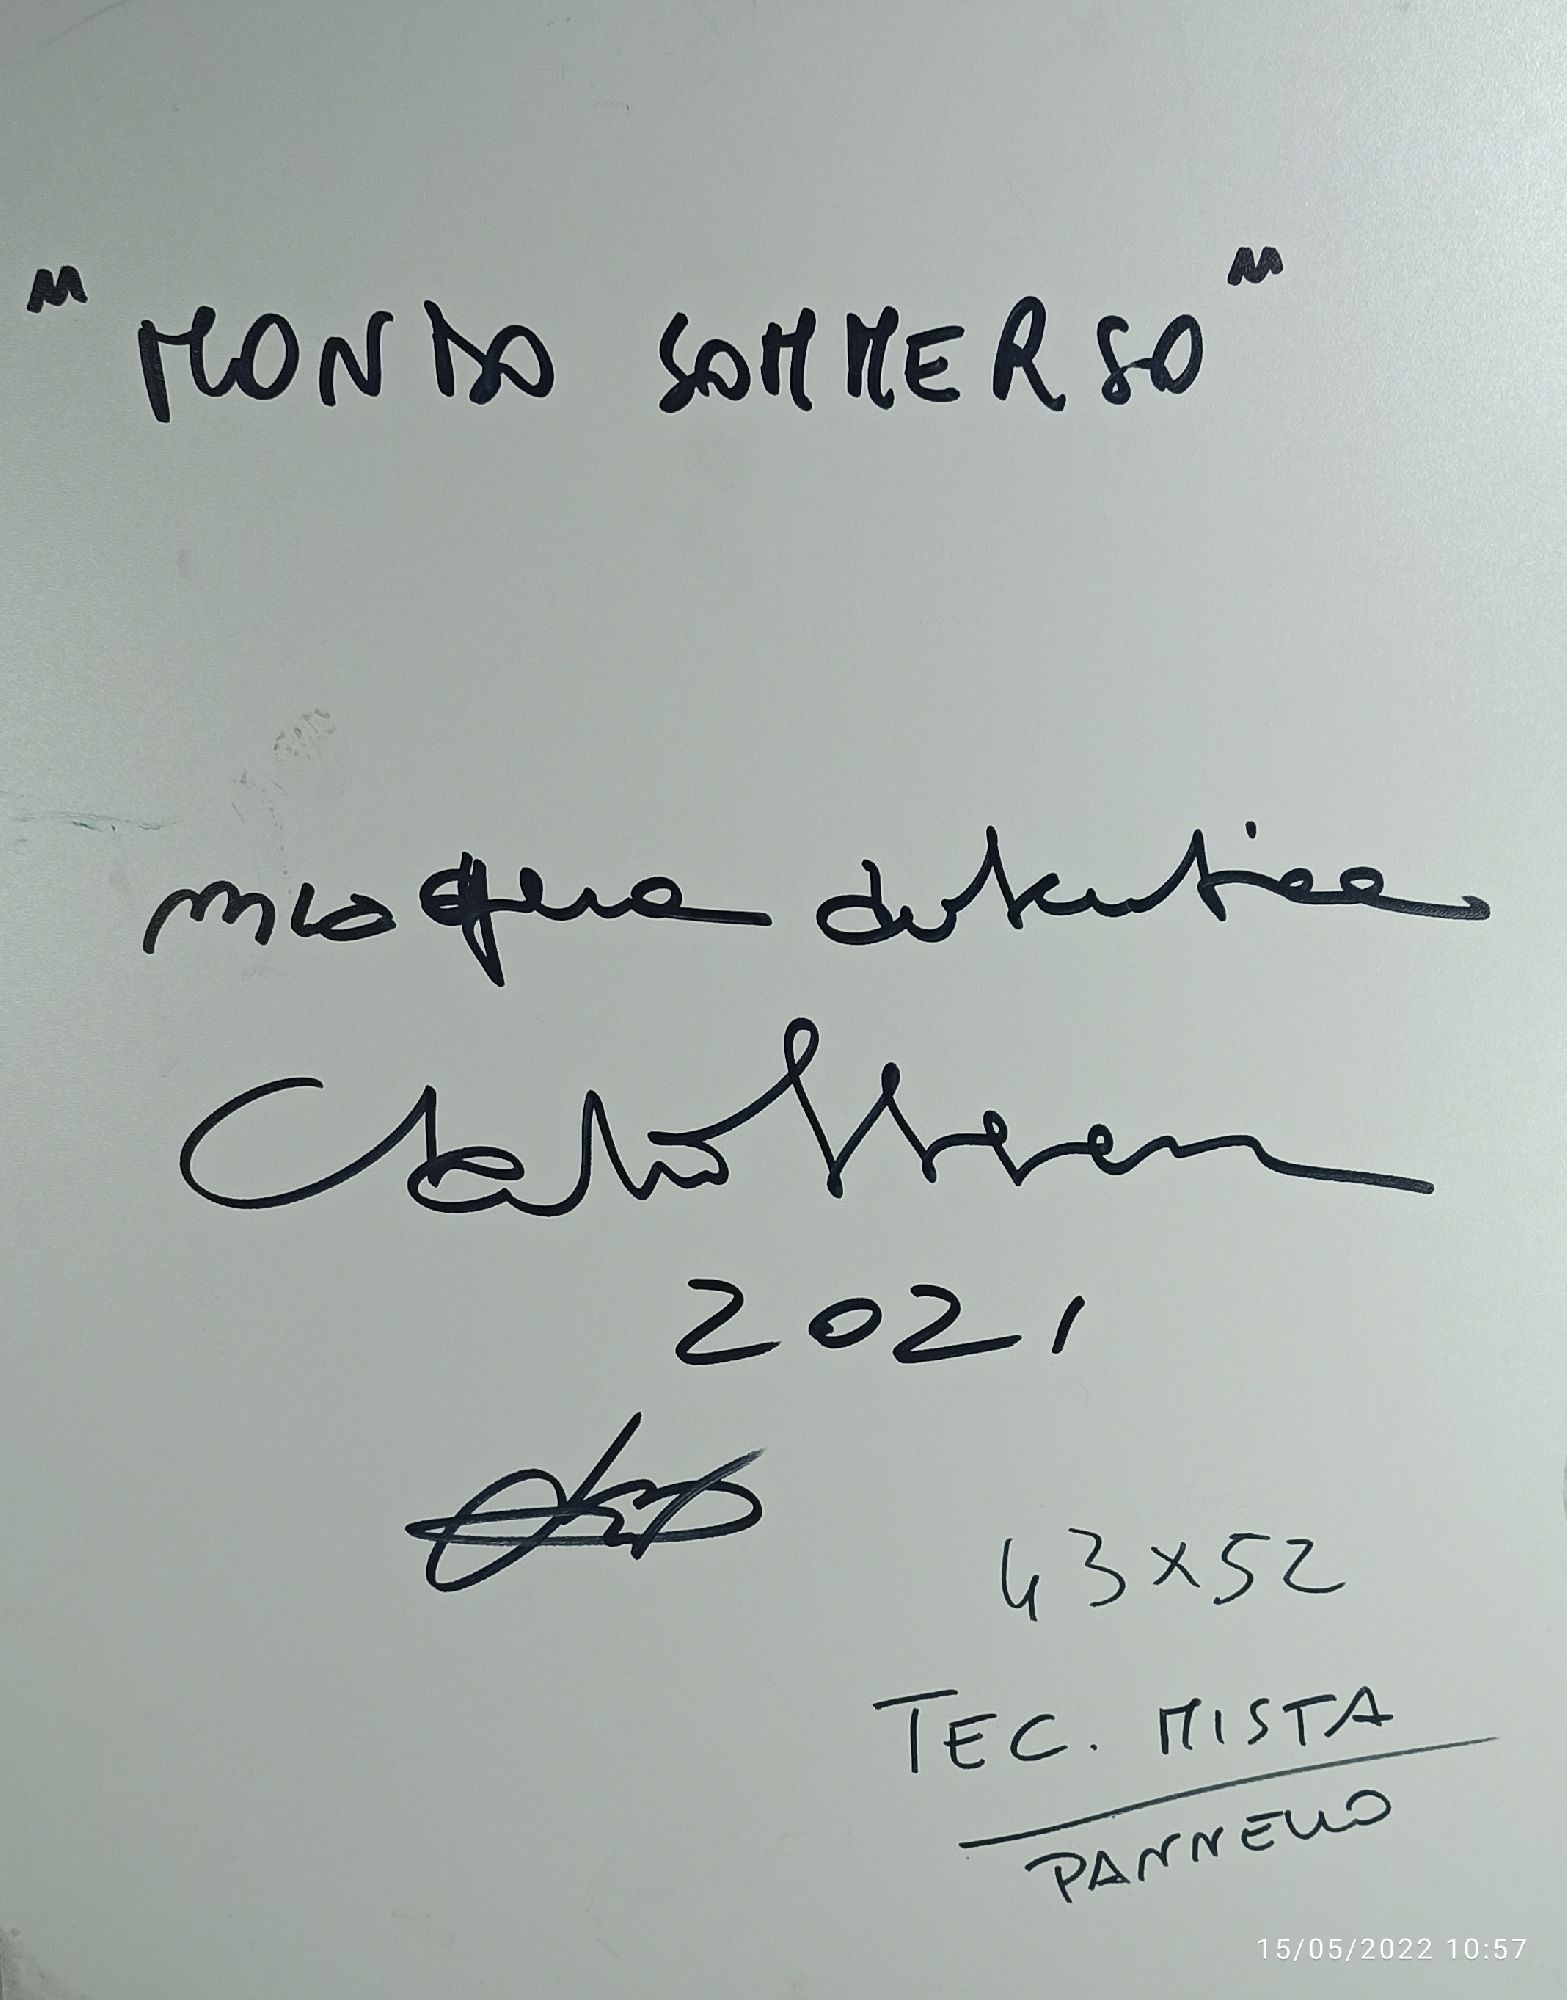 "MONDO SOMMERSO"
mia opera autentica
2021
43x52
TEC. MISTA
PANNELLO
15/05/2022 10:57